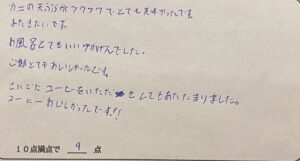 カニの天ぷらがフワフワでとても美味かったです。
またきたいです。
お風呂とてもいいゆかげんでした。
ご飯とてもおいしかったです。
さいごにコーヒーをいただきとてもあたたまりました。
コーヒーおいしかったです!!
10点満点で 9 点